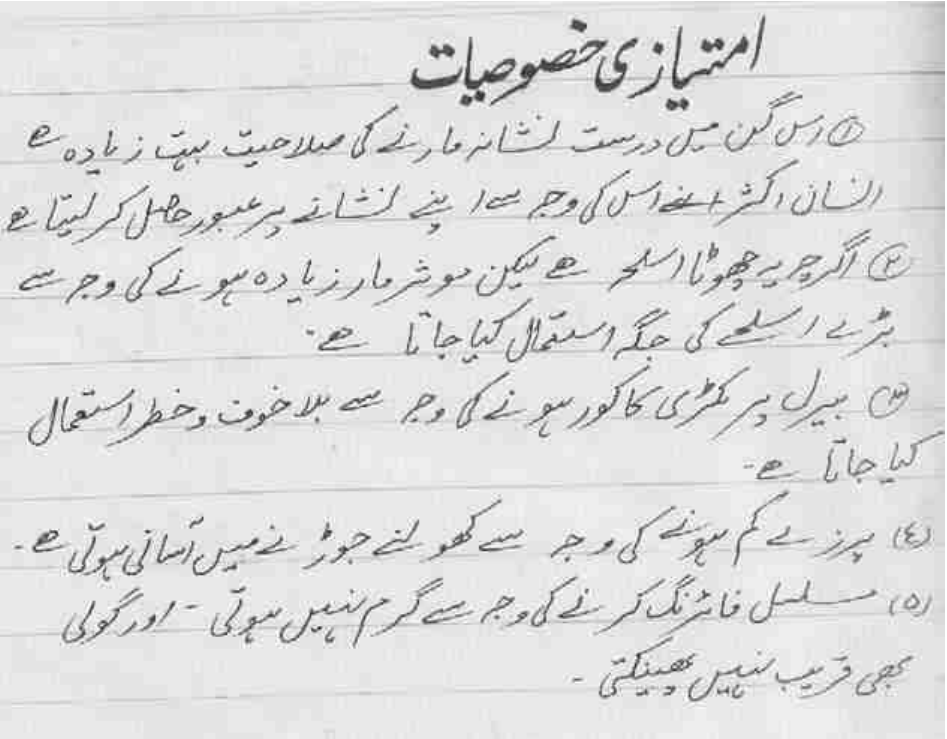 امتیازی خصوصیات
① اس گن میں درست نشانہ مارنے کی صلاحیت بہت زیادہ ہے
انسان اکثر اس کی وجہ سے اپنے نشانے پر عبور حاصل کر لیتا ہے
② اگرچہ یہ چھوٹا اسلحہ ہے لیکن موثر مار زیادہ ہونے کی وجہ سے
بڑے اسلحے کی جگہ استعمال کیا جاتا ہے۔
③ بیرل پر لکڑی کا کور ہونے کی وجہ سے بلا خوف و خطر استعمال
کیا جاتا ہے۔
(٤) پرزے کم ہونے کی وجہ سے کھولنے جوڑنے میں آسانی ہوتی ہے۔
(٥) مسلسل فائرنگ کرنے کی وجہ سے گرم نہیں ہوتی ۔ اور گولی
بھی قریب نہیں پھینکتی ۔